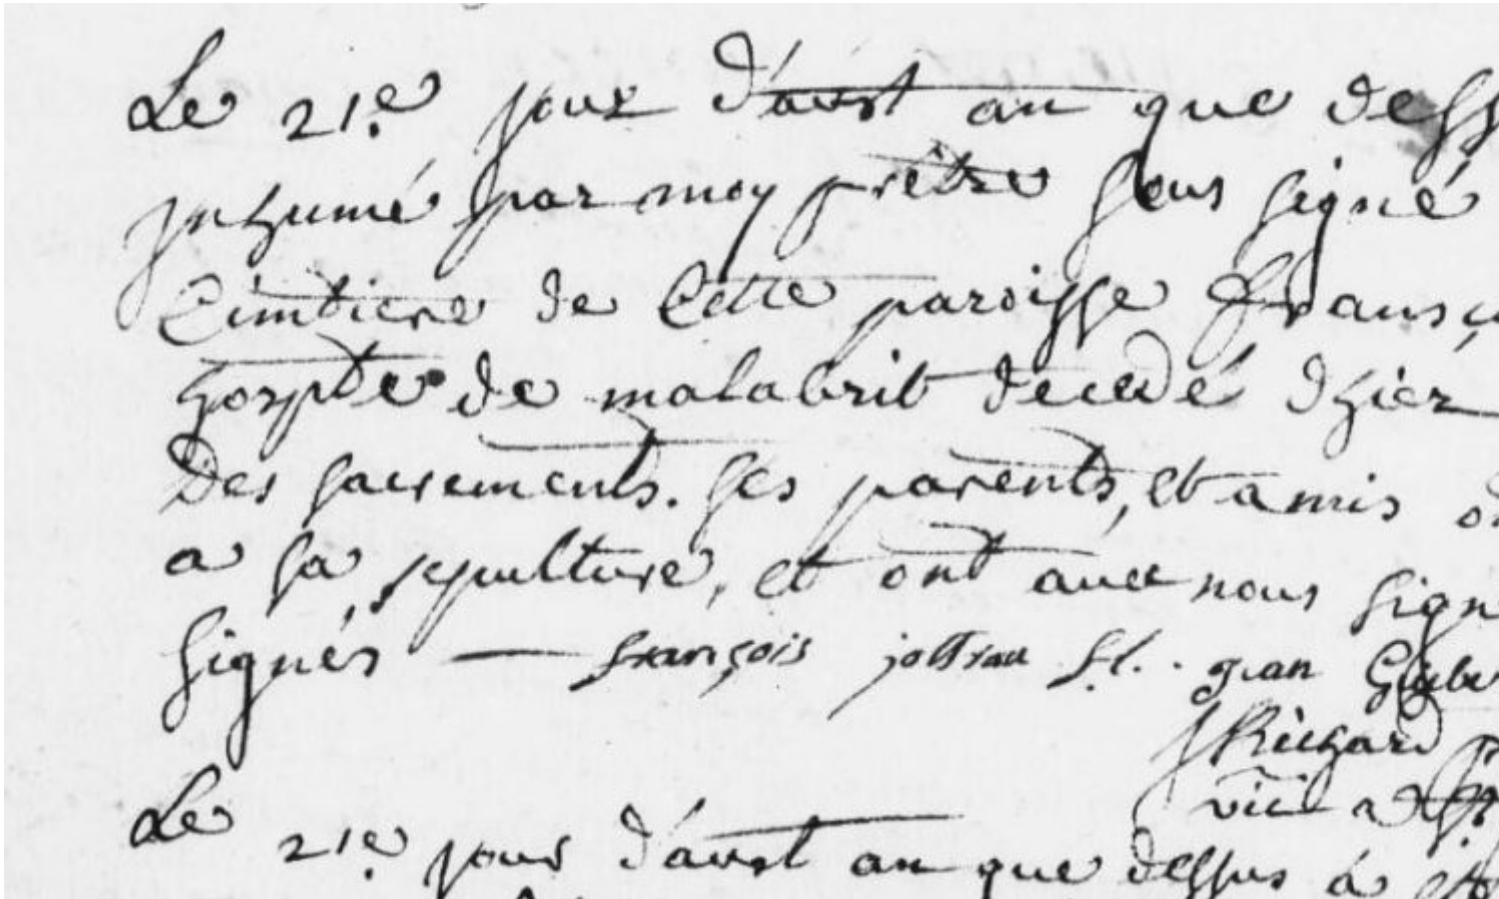 Le 21.e jour d'aust an que dess
jnhumé par moy prêtre sous signé
Cimtiere de Cette paroisse franço
hospte de malabrit decedé dhier
Des sacrements. ses parents, et amis o
a sa sepulture, et ont avec nous sign
signés — françois jottrau f.l. . jean
JRichard
vic
Le 21e. jour d'aust an que dessus à